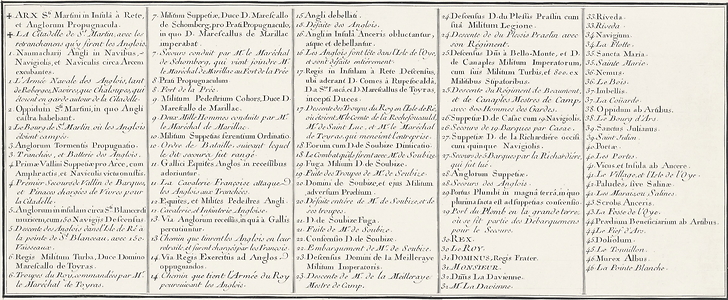 ✝ ARX Sti. Martini in Insulâ à Rete,
et Anglorum Propugnacula.
✝ LA Citadelle de St. Martin, avec les
retranchemens qu'y firent les Anglois.
1 Naumachiarij Angli in Navibus,
Navigiolis, et Naviculis circa Arcem
excubantes.
1 L'Armée Navale des Anglois, tant
de Roberges, Navires, que Chaloupes, qui
étoient en garde autour de la Citadelle.
2 Oppidulum Sti. Martini, in quo Angli
castra habebant.
2 Le Bourg de St. Martin où les Anglois
étoient campez.
3 Anglorum Tormentis Propugnatio.
3 Tranchées, et Batterie des Anglois.
4 Primæ Vallini Suppetiæ pro Arce, cum
Amphractis, et Naviculis victu onustis.
4 Premier Secours de Vallin de Barques,
et Pinaces chargées de Vivres pour
la Citadelle.
5 Anglorum in insulam circa St. Blanceau
6 Regis Militum Turba, Duce Domino
Marescallo de Toyras.
6 Troupes du Roy, commandées par Mr.
le Maréchal de Toyras.
7 Militum Suppetiæ, Duce D. Marescallo
de Schomberg, pro Prati Propugnaculo,
in quo D. Marescallus de Marillac
imperabat.
7 Secours conduit par Mr. le Maréchal
de Schomberg, qui vint joindre Mr.
le Maréchal de Marillac au Fort de la Prée.
8 Prati Propugnaculum.
8 Fort de la Prée.
9 Militum Pedestrium Cohors, Duce D.
Marescallo de Marillac.
9 Deux Mille Hommes conduits par Mr.
le Maréchal de Marillac.
10 Militum Suppetiæ ferentium Ordinatio.
10 Ordre de Bataille suivant lequel
le dit secours fut rangé.
11 Gallici Equites Anglos in recessibus
adoriuntur.
11 La Cavalerie Françoise attaque
les Anglois aux Tranchées.
12 Equites, et Milites Pedestres Angli.
12 Cavalerie et Infanterie Angloise.
13 Via Anglorum recessûs, in quâ à Gallis
percutiuntur.
13 Chemin que tinrent les Anglois en leur
retraite et furent chargés par les François.
14 Via Regis Exercitus ad Anglos
oppugnandos.
14 Chemin que tient l'Armée du Roy
poursuivant les Anglois.
15 Angli debellati.
15 Défaite des Anglois.
16 Angli in Insulâ Anceris obluctantur,
atque et debellantur.
16 Les Anglois font tête dans l'Isle de l'Oye,
et sont défaits entièrement.
17 Regis in Insulam à Rete Descensus,
ubi aderant D. Comes à Rupefucaldâ,
D. à St. Lucâ et D. Marescallus de Toyras,
utcepti Duces.
17 Descente des Troupes du Roy en l'Isle de Ré,
où étoient Mr. le Comte de la Rochefoucauld,
Mr. de Saint Luc, et Mr. le Maréchal
de Toyras, qui menoient l'entreprise.
18 Eorum cum D. de Soubize Dimicatio.
18 Le Combat qu'ils firent avec Mr. de Soubize.
19 Fuga Militum D. de Soubize.
19 Fuite des Troupes de Mr. de Soubize.
20 Domini de Soubize, et ejus Militum
adversum Prælium.
20 Défaite entière de Mr. de Soubize, et de
ses troupes.
21 D. de Soubize Fuga.
21 Fuite de Mr. de Soubize.
22 Conscensio D. de Soubize.
22 Embarquement de Mr. de Soubize.
23 Descensus Domini de la Meilleraye
Militum Imperatoris.
23 Descente de Mr. de la Meilleraye
Mestre de Camp.
24 Descensus D. du Plessis Praslin cum
suâ Militum Legione.
24 Descente de du Plessis Praslin avec
son Régiment.
25 Descensus D. à Bello-Monte, et D.
de Canaples Militum Imperatorum,
cum suis Militum Turbis, et 800. ex
Militibus Stipatoribus.
25 Descente du Régiment de Beaumont,
et de Canaples, Mestres de Camp,
avec 800. Hommes des Gardes.
26 Suppetiæ D. de Casac cum 19 Naviculis.
26 Secours de 19 Barques par Casac.
27 Suppetiæ D. de la Richarderie accitis
cum quinque Navigiolis.
27 Secours de 5 Barques par la Richardière,
qui fut tué.
28 Anglorum Suppetiæ.
28 Secours des Anglois.
29 Portus Plumbi in magnâ terrâ, in quo
plurima facta est ad suppetias conscensio.
29 Port du Plomb en la grande terre,
où se fit partie des Débarquemens
pour le Secours.
30 REX.
30 Le ROY.
31 DOMINUS, Regis Frater.
31 MONSIEUR.
32 Divus La Davienne.
32 Mr. La Davienne.
33 Riveda.
33 Riveda.
34 Navigium.
34 La Flotte.
35 Sancta Maria.
35 Sainte Marie.
36 Nemus.
36 Le Bois.
37 Imbellis.
37 La Couarde.
38 Oppidum ab Artibus.
38 Le Bourg d'Ars.
39 Sanctus Julianus.
39 Saint Julian.
40 Portæ.
40 Les Portes.
41 Vicus et Insula ab Ancere.
41 Le Village, et l'Isle de l'Oye.
42 Paludes, sive Salinæ.
42 Les Marais, ou Salines.
43 Scroba Anceris.
43 La Fosse de l'Oye.
44 Prædium Beneficiarium ab Artibus.
44 Le Fief d'Ars.
45 Doliolum.
45 Le Tonnillon.
46 Murex Albus.
46 La Pointe Blanche.